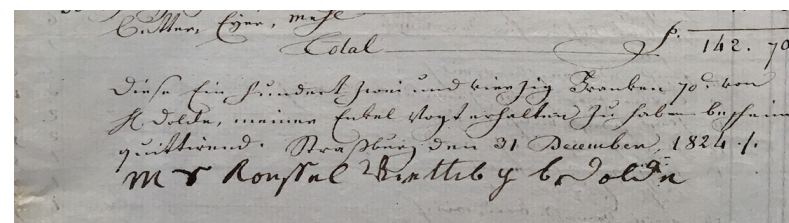 Butter, Eyer, Mehl
Total f. 142. 70
Diese Ein Hundert zwei und vierzig Franken 70 c. von
H Dolde, meiner Enkel Vogt erhalten zu haben beschein
quittirend. Straßburg den 31 December, 1824 ./.
M r Roussel Wittib g b Dolde